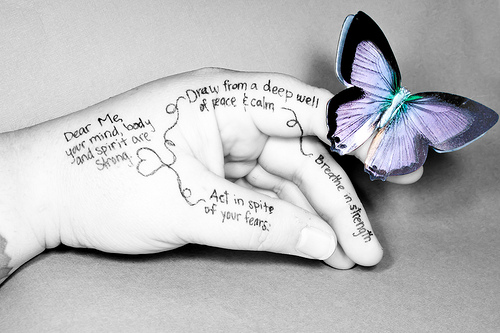 Dear Me,
your mind, body
and spirit are
strong.
Draw from a deep well
of peace & calm
Breathe in strength
Act in spite
of your fears.